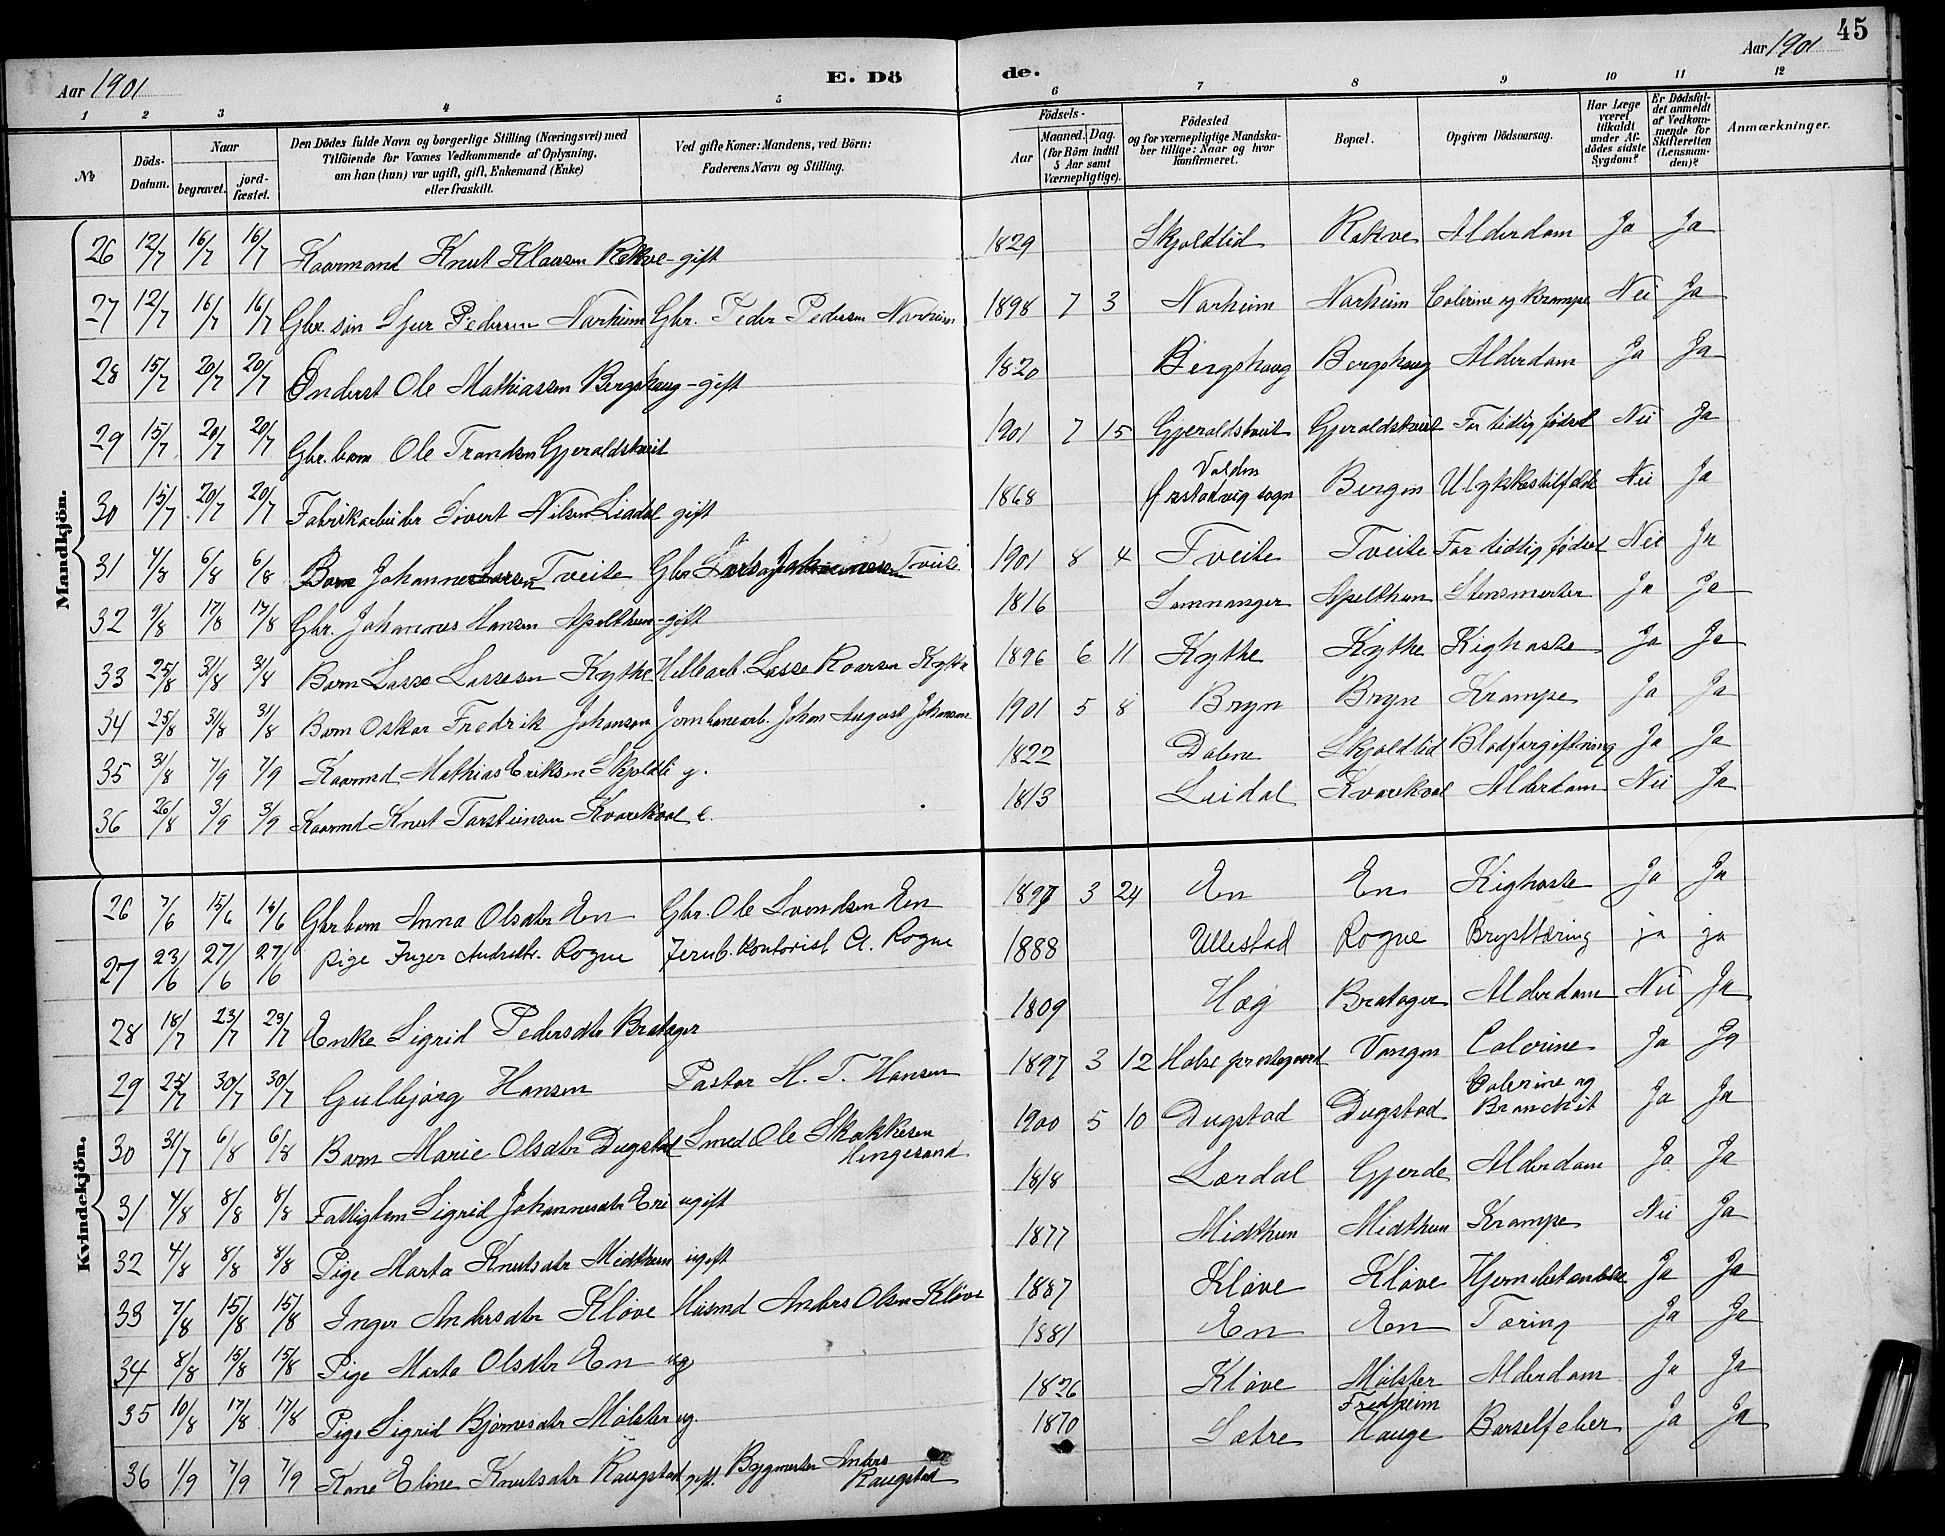 45
Aar 1901 E. Dö de. Aar 1901
1 2 3 4 5 6 7 8 9 10 11 12
№ Döds-Datum. Naar begravet. jord-fæstet. Den Dödes fulde Navn og borgerlige Stilling (Næringsvei) med Tilföiende for Voxnes Vedkommende af Oplysning, om han (hun) var ugift, gift, Enkemand (Enke) eller fraskilt. Ved gifte Koner: Mandens, ved Börn: Faderens Navn og Stilling. Födsels- Aar Maaned. Dag. (for Börn indtil 5 Aar samt Værnepligtige). Födested og for værnepligtige Mandskaber tillige: Naar og hvor konfirmeret. Bopæl. Opgiven Dödsaarsag. Har Læge været tilkaldt under Afdödes sidste Sygdom? Er Dödsfaldet anmeldt af Vedkommende for Skifteretten (Lensmanden)? Anmærkninger.
Mandkjön.
26 12/7 16/7 16/7 Kaarmand Knut Klausen Rekve - gift 1829 Skjoldlid Rekve Alderdom Ja Ja
27 12/7 16/7 16/7 Gbr. søn Sjur Pedersen Norheim Gbr. Peder Pedersen Norheim 1898 7 3 Norheim Norheim Colerine og Krampe Nei Ja
28 15/7 20/7 20/7 Inderst Ole Mathiassen Bergshaug - gift 1820 Bergshaug Bergshaug Alderdom Ja Ja
29 15/7 20/7 20/7 Gbr. barn Ole Trondsen Gjeraldstveit 1901 7 15 Gjeraldstveit Gjeraldstveit For tidlig fødsel Nei Ja
30 15/7 20/7 20/7 Fabrikarbeider Sivert Nilsen Liadal gift 1868 Volden prestegj sogn Bergen Ulykkestilfælde Nei Ja
31 4/8 6/8 6/8 Barn Johannes Larsen Tveite Gbr Lars Johannessen Tveite 1901 8 4 Tveite Tveite For tidlig fødsel Nei Ja
32 9/8 17/8 17/8 Gbr. Johannes Hansen Apelthun - gift 1816 Samnanger Apelthun Stensmerter Ja Ja
33 25/8 31/8 31/8 Barn Lasse Lassesen Kythe Hellearb. Lasse Roarsen Kythe 1896 6 11 Kythe Kythe Kighoste Ja Ja
34 25/8 31/8 31/8 Barn Oskar Fredrik Johansen Jernbanearb. Johan August Johansen 1901 5 8 Bryn Bryn Krampe Ja Ja
35 31/8 7/9 7/9 Kaarmd Mathias Eriksen Skjoldli g. 1822 Dalene Skjoldlid Blodforgiftning Ja Ja
36 26/8 3/9 3/9 Kaarmd Knut Torsteinsen Kvarekval e. 1813 Leidal Kvarekval Alderdom Nei Ja
Kvindekjön.
26 7/6 15/6 15/6 Gbr barn Anna Olsdtr En Gbr. Ole Svendsen En 1897 3 24 En En Kighoste Ja Ja
27 23/6 27/6 27/6 Pige Inger Andrdtr. Rogne Jernb. kontorist A. Rogne 1888 Ullestad Rogne Brysttæring ja ja
28 18/7 23/7 23/7 Enke Sigrid Pedersdtr Bratager 1809 Hæg Bratager Alderdom Nei Ja
29 25/7 30/7 30/7 Gulbjørg Hansen Pastor H. T. Hansen 1897 3 12 Holse prestegaard Vangen Colerine Ja Ja
30 31/7 6/8 6/8 Barn Marie Olsdtr Dugstad Smed Ole Skakkesen Hingesand 1900 5 10 Dugstad Dugstad Colerine og Bronchit Ja Ja
31 4/8 8/8 8/8 Fattiglem Sigrid Johannesdtr Eri ugift 1818 Lærdal Gjerde Alderdom Ja Ja
32 4/8 8/8 8/8 Pige Marta Knutsdtr Midthun ugift 1877 Midthun Midthun Krampe Nei Ja
33 7/8 15/8 15/8 Inger Andersdtr Kløve Husmd Anders Olsen Kløve 1887 Kløve Kløve Hjernebetændelse Ja Ja
34 8/8 15/8 15/8 Pige Marta Olsdtr En ug. 1881 En En Tæring Ja Ja
35 10/8 17/8 17/8 Pige Sigrid Bjørnesdtr Mølster ug. 1826 Kløve Mølster Alderdom Ja Ja
36 1/9 7/9 7/9 Kone Eline Knutsdtr Raugstad gift. Bygmester Anders Raugstad 1870 Sætre Fredheim Hauge Barselfeber Ja Ja